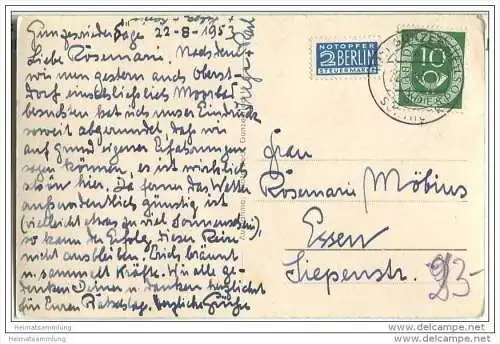 Gunzesrieder Säge 22-8-1953
Liebe Rosemarie. Nachdem
wir nun gestern auch Oberst-
dorf einschliesslich Moorbad
besuchten hat sich unser Eindruck
soweit abgerundet, dass wir
auf Grund eigener Erfahrungen
sagen können, es ist wirklich
schön hier. Da ferner das Wetter
außerordentlich günstig ist
(vielleicht etwas zu viel Sonnenschein),
so kann der Erfolg dieser Reise
nicht ausbleiben. Erich bräunt
u. sammelt Kräfte. Wir alle ge-
denken Deiner u. danken herzlichst
für Euren Ratschlag. Herzliche Grüße
NOTOPFER
2 BERLIN
STEUERMARKE
10
DEUTSCHE BUNDESPOST
Frau
Rosemarie Möbius
Essen
Siepenstr. 93
Heimatsammlung
delcampe.net